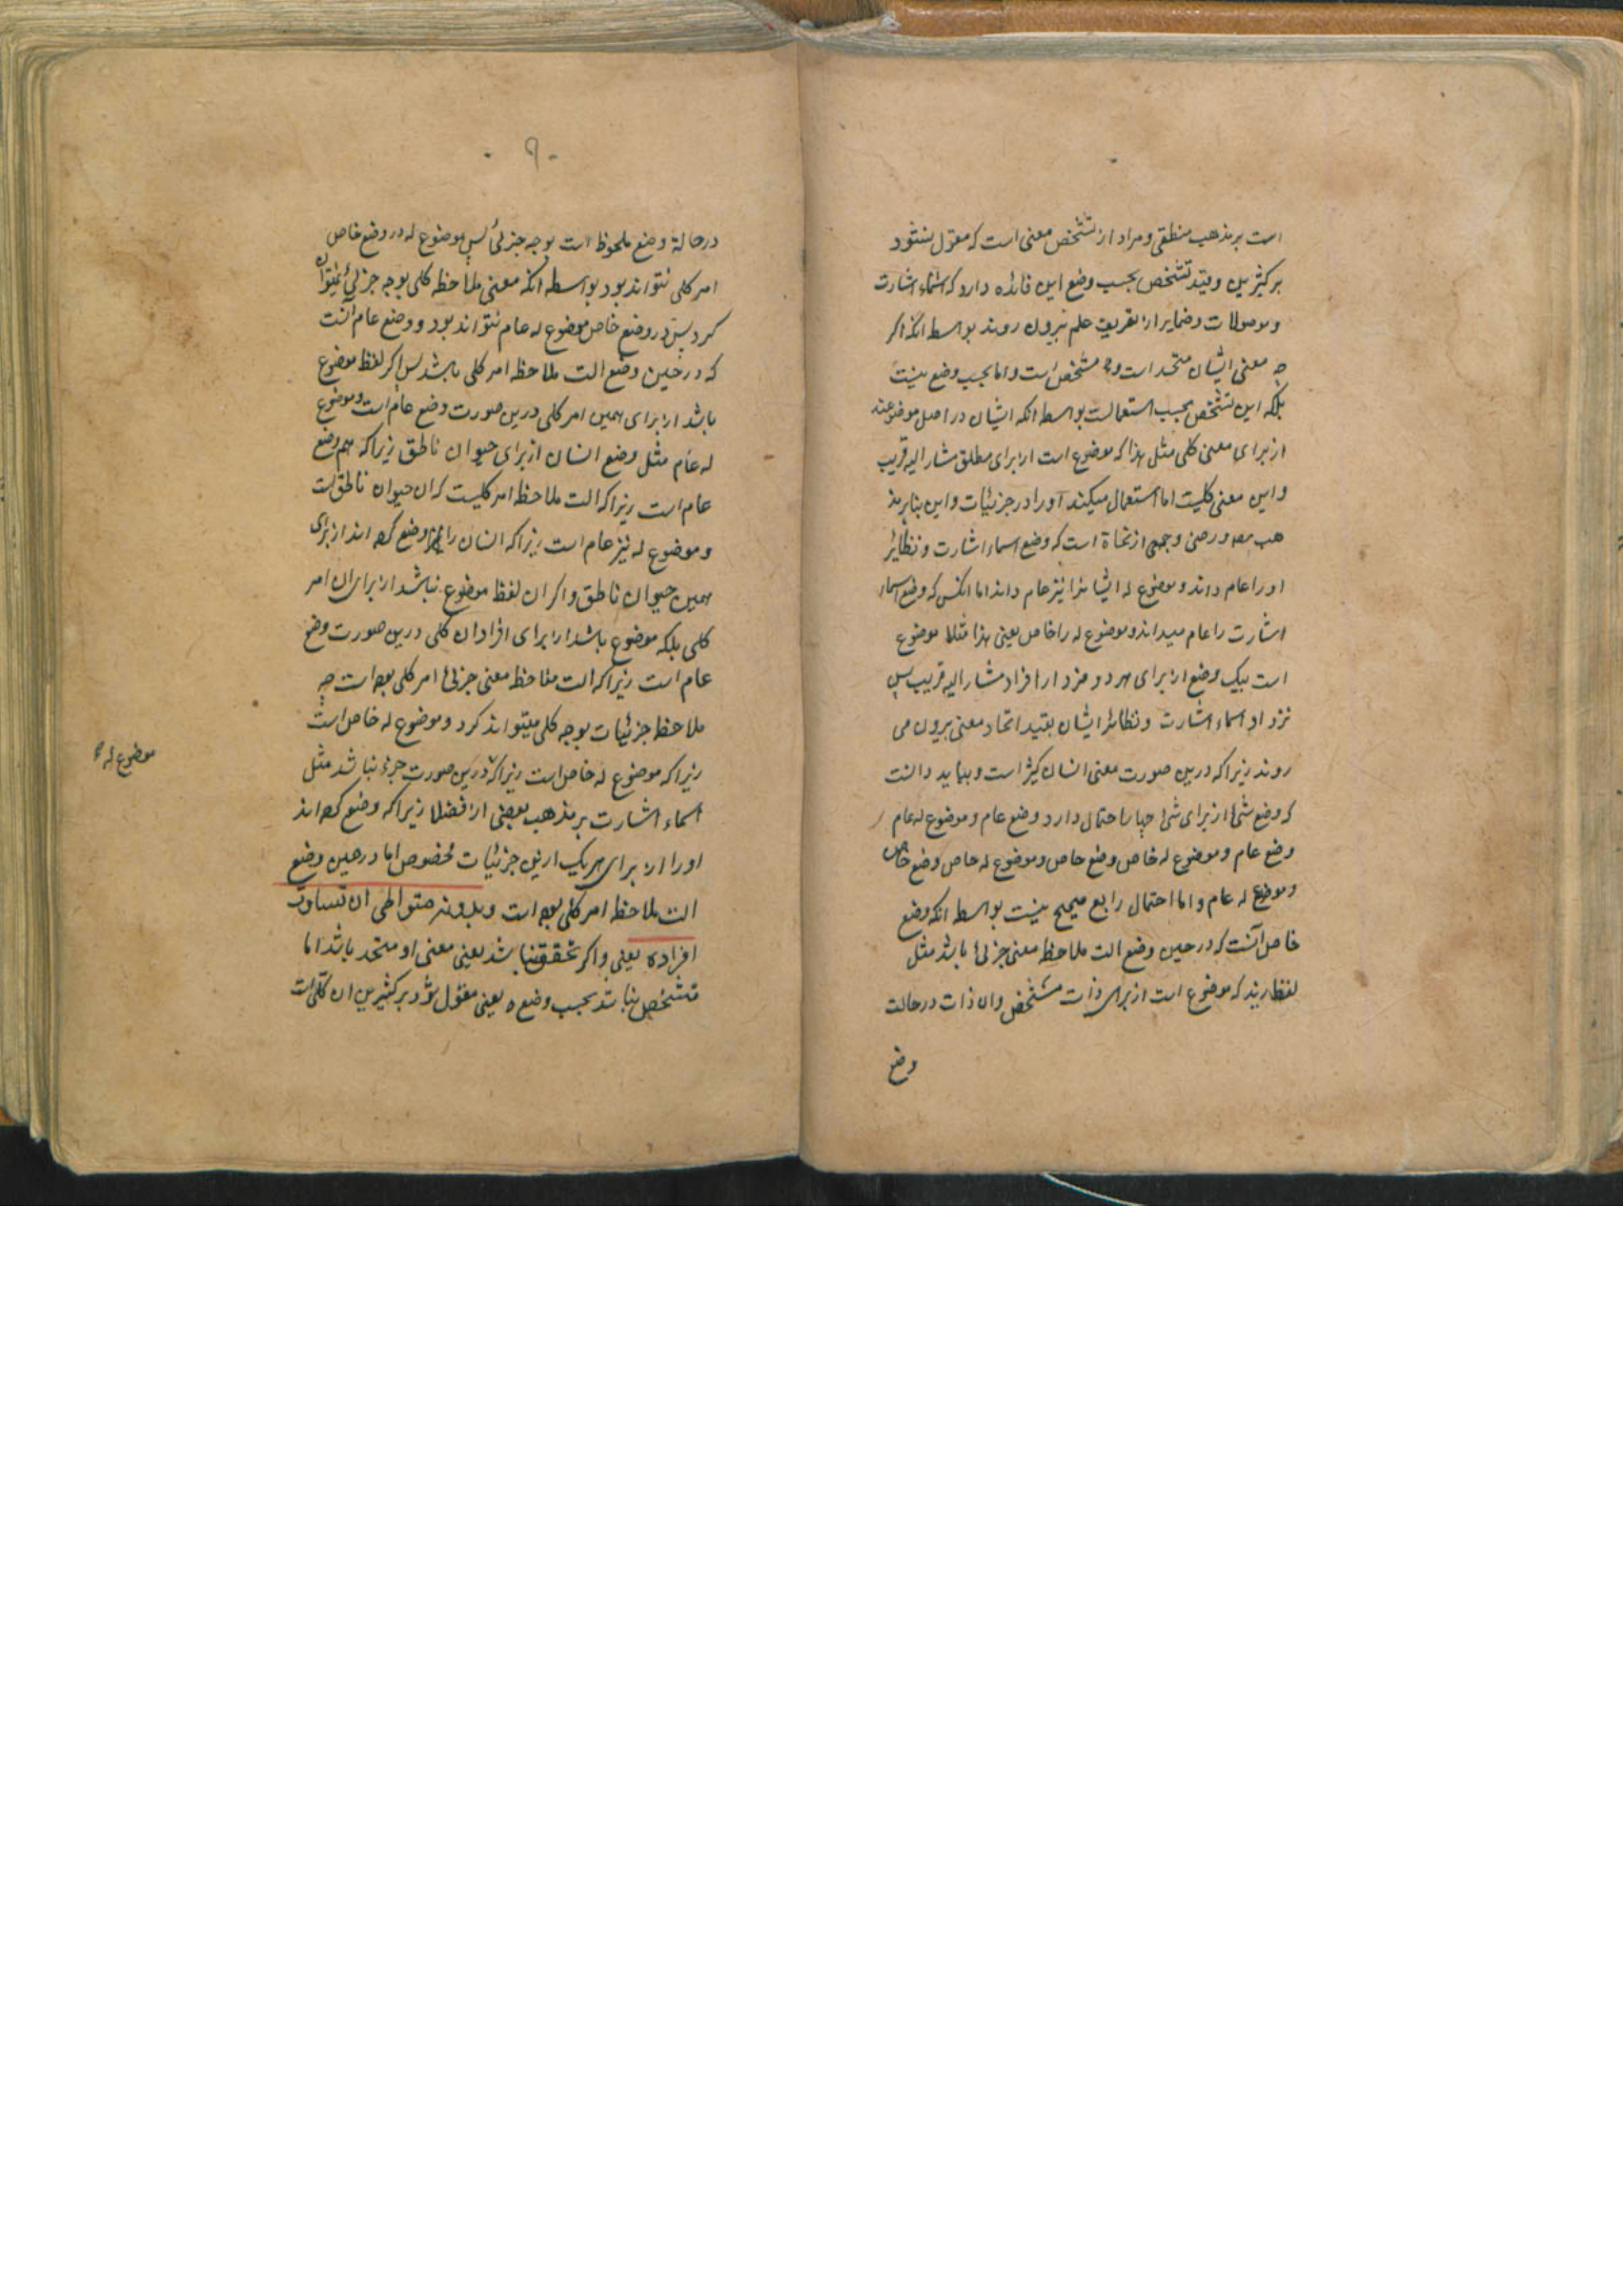 است بر مذهب منطقی و مراد از تشخص معنی است که مقول نشود
بر کثیرین و قید تشخص بحسب وضع این فائده دارد که اسماء اشارت
و موصولات و ضمایر از تعریف علم بیرون روند بواسطه انکه اکر
چه معنی ایشان متحد است و مشخص است و اما بحسب وضع نیست
بلکه این تشخص بحسب استعمالست بواسطه انکه ایشان در اصل موضوعند
از برای معنی کلی مثل هذا که موضوع است از برای مطلق مشار الیه قریب
و این معنی کلیست اما استعمال میکنند او را در جزئیات و این بنابر مذ
هب و رضی و جمعی از نحاة است که وضع اسماء اشارت و نظایر
او را عام داند و موضوع له ایشانرا نیز عام داند اما انکس که وضع اسماء
اشارت را عام میداند و موضوع له را خاص یعنی هذا مثلا موضوع
است بیک وضع از برای هر فرد از افراد مشار الیه قریب پس
نزد او اسماء اشارت و نظائر ایشان بقید اتحاد معنی بیرون می
روند زیرا که درین صورت معنی ایشان کثیر است و بباید دانست
که وضع شئ از برای شئ چهار احتمال دارد وضع عام و موضوع له عام
وضع عام و موضوع له خاص وضع خاص و موضوع له خاص وضع خاص
و موضوع له عام و اما احتمال رابع صحیح نیست بواسطه انکه وضع
خاص آنست که در حین وضع الت ملاحظه معنی جزئی باشد مثل
لفظ زید که موضوع است از برای ذات مشخص و ان ذات در حالت
وضع
۹
در حالة وضع ملحوظ است بوجه جزئی پس موضوع له در وضع خاص
امر کلی نتواند بود بواسطه انکه معنی ملاحظه کلی بوجه جزئی نمیتوان
کرد پس در وضع خاص موضوع له عام نتواند بود و وضع عام آنست
که در حین وضع الت ملاحظه امر کلی باشد پس اکر لفظ موضوع
باشد از برای همین امر کلی درین صورت وضع عام است و موضوع
له عام مثل وضع انسان از برای حیوان ناطق زیرا که هم وضع
عام است زیرا که الت ملاحظه امر کلیست که ان حیوان ناطق است
و موضوع له نیز عام است زیرا که انسان را وضع کرده اند از برای
همین حیوان ناطق و اکر ان لفظ موضوع نباشد از برای ان امر
کلی بلکه موضوع باشد از برای افراد ان کلی درین صورت وضع
عام است زیرا که الت ملاحظه معنی جزئی امر کلی بوده است چه
ملاحظه جزئیات بوجه کلی میتواند کرد و موضوع له خاص است
زیرا که موضوع له خاص است زیرا که درین صورت جزء نباشد مثل
موضوع له
اسماء اشارت بر مذهب بعضی از فضلا زیرا که وضع کرده اند
او را از برای هر یک ازین جزئیات مخصوص اما در حین وضع
الت ملاحظه امر کلی بوده است و بدونه متواطی ان تساوت
افراده یعنی و اکر تحقق نباشد یعنی معنی او متحد باشد اما
تشخص نباشد بحسب وضع ه یعنی مقول شود بر کثیرین ان کلی است